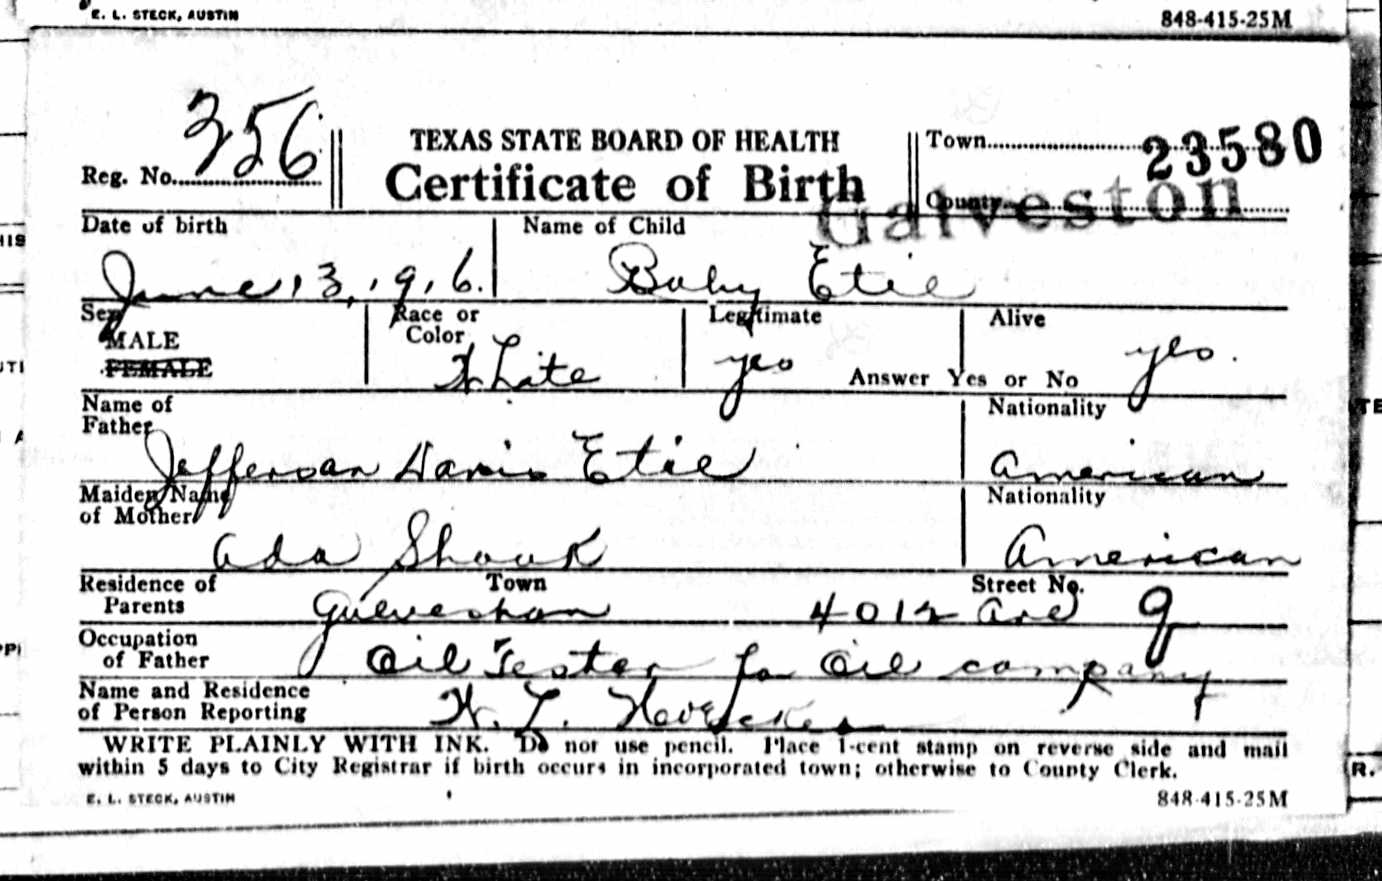 E. L. STECK, AUSTIN 848-415-25M
Reg. No. 356
TEXAS STATE BOARD OF HEALTH
Certificate of Birth
Town 23580
County Galveston
Date of birth Name of Child
June, 3, 1916. Baby Etie
Sex Race or Color Legitimate Alive
MALE
FEMALE White yes Answer Yes or No yes.
Name of Father Nationality
Jefferson Davis Etie American
Maiden Name of Mother Nationality
Ada Shook American
Residence of Parents Town Street No.
Galveston 4012 Ave Q
Occupation of Father
Oil Tester for Oil company
Name and Residence of Person Reporting
WRITE PLAINLY WITH INK. Do not use pencil. Place 1-cent stamp on reverse side and mail
within 5 days to City Registrar if birth occurs in incorporated town; otherwise to County Clerk.
E. L. STECK, AUSTIN 848-415-25M